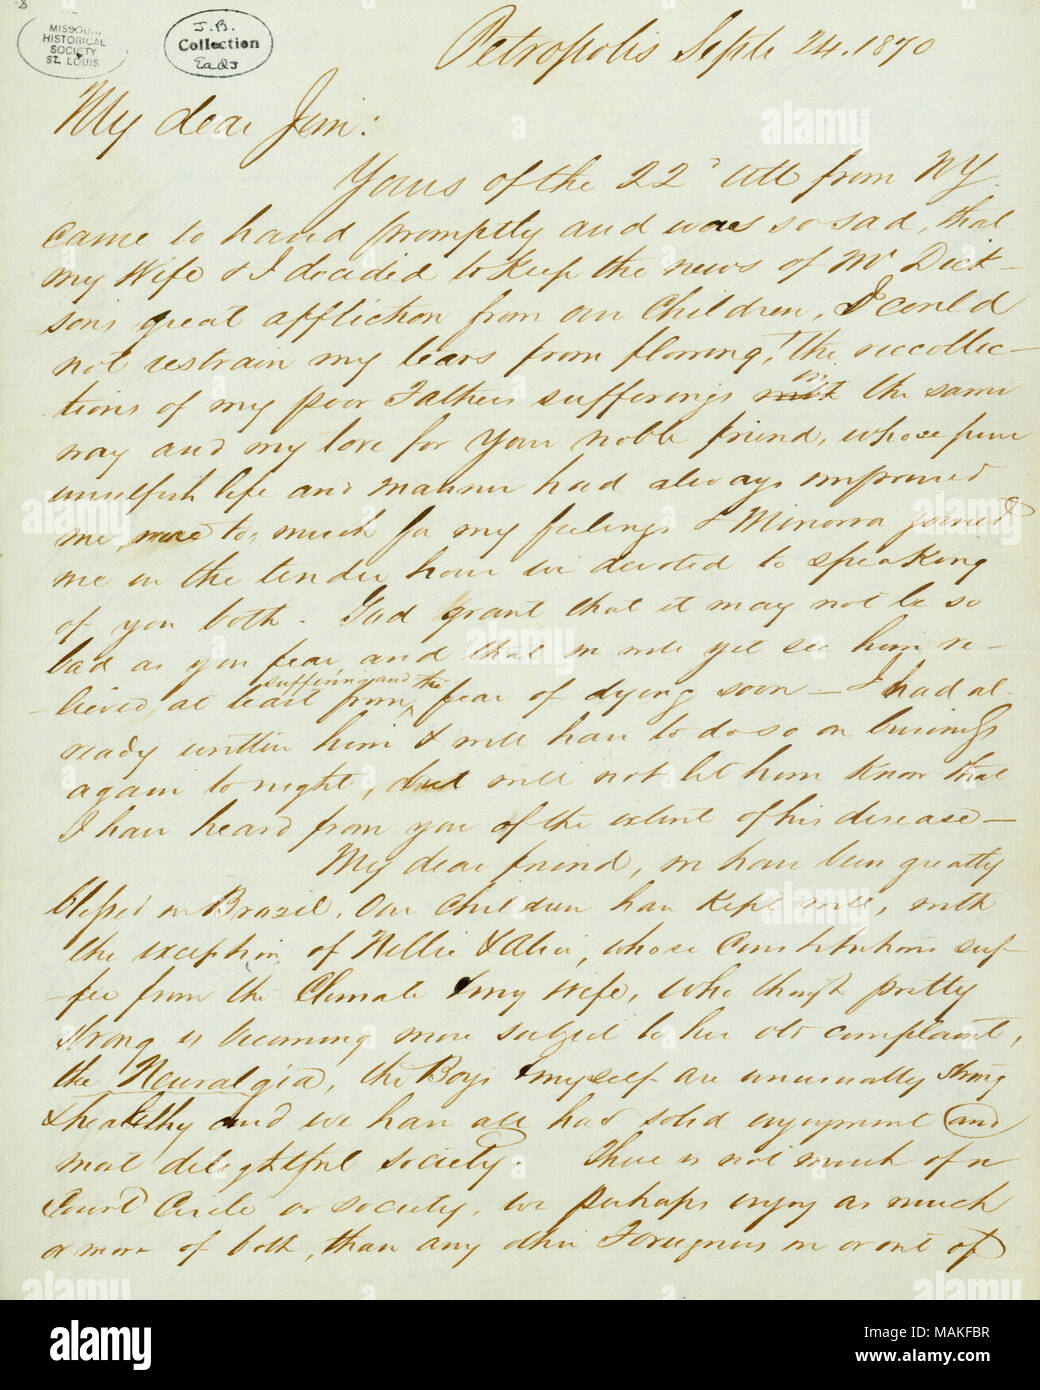 8
MISSOURI
HISTORICAL
SOCIETY
ST. LOUIS
J. B.
Collection
Eads
Petropolis Septr 24. 1870
My dear Jim:
Yours of the 22d ult from NY.
came to hand promptly and was so sad, that
my Wife & I decided to keep the news of Mr Dick-
sons great affliction from our Children, I could
not restrain my tears from flowing! the reccollec-
tions of my poor Fathers sufferings in the same
way and my love for your noble friend, whose pure
unselfish life and manner had always impressed
me, were too much for my feelings & Minerva joined
me in the tender hour we devoted to speaking
of you both. God grant that it may not be so
bad as you fear, and that we will yet see him re-
lieved, at least from suffering and the fear of dying soon — I had al-
ready written him & will have to do so on business
again to night, but will not let him know that
I have heard from you of the extent of his disease —
My dear friend, we have been greatly
blessed in Brazil, Our Children have kept well, with
the exception of Nellie & Alice, whose Constitutions suf-
fer from the Climate & my Wife, who though pretty
strong is becoming more subject to her old complaint,
the Neuralgia, the Boys & myself are unusually strong
& healthy and we have all had solid enjoyment and
most delightful society. There is not much of a
Court Circle or society, we perhaps enjoy as much
or more of both, than any other Foreigners in or out of
alamy
Image ID: MAKFBR
www.alamy.com